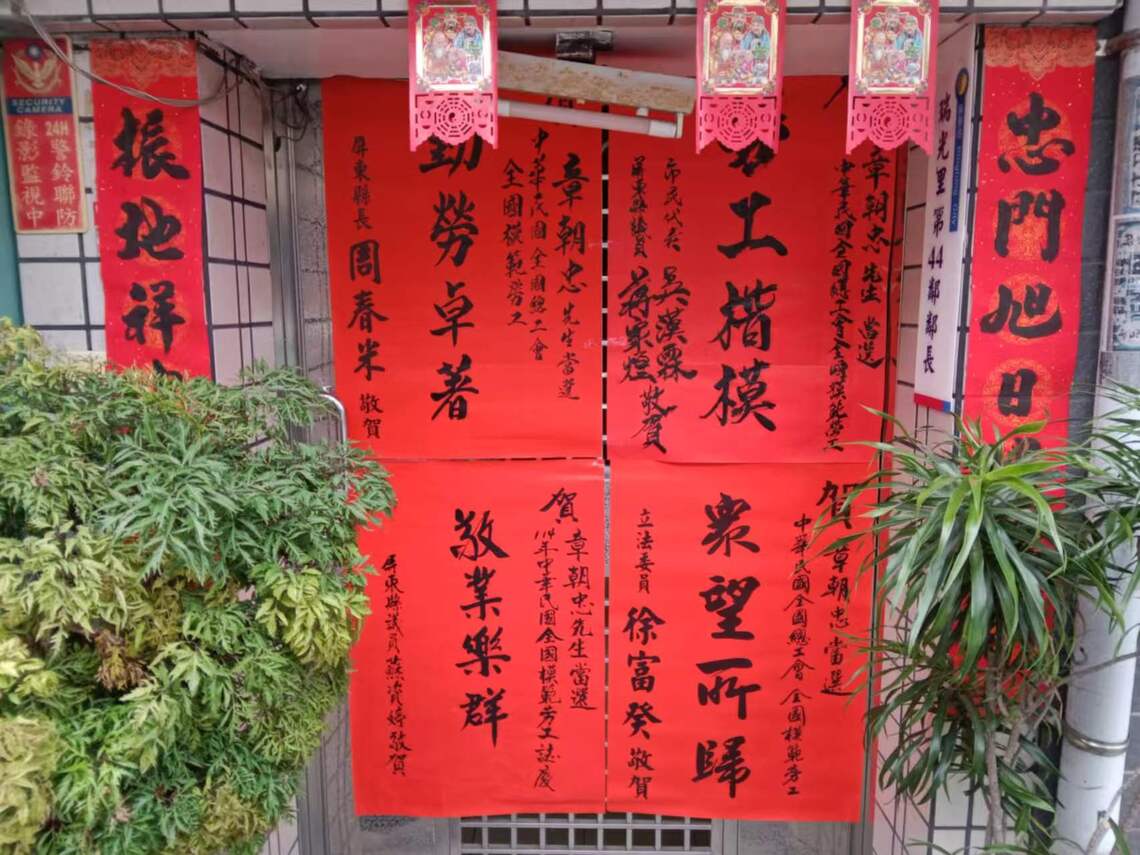 忠門旭日
瑞光里第44鄰鄰長
章朝忠先生 當選
中華民國全國總工會全國模範勞工
工楷模
市民代表 吳漢霖
屏東縣議員 蔣家煌 敬賀
章朝忠先生當選
中華民國全國總工會
全國模範勞工
勤勞卓著
屏東縣長 周春米 敬賀
賀 章朝忠 當選
中華民國全國總工會全國模範勞工
眾望所歸
立法委員 徐富癸 敬賀
賀 章朝忠先生當選
114年中華民國全國模範勞工誌慶
敬業樂群
屏東縣議員 敬賀
振地祥
SECURITY
CAMERA
24H警鈴聯防
錄影監視中